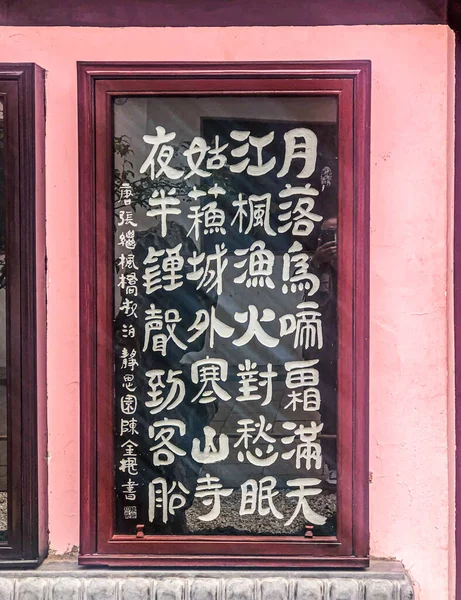 月落烏啼霜滿天
江楓漁火對愁眠
姑蘓城外寒山寺
夜半鍾聲到客船
唐張繼楓橋夜泊 靜思園陳金
書